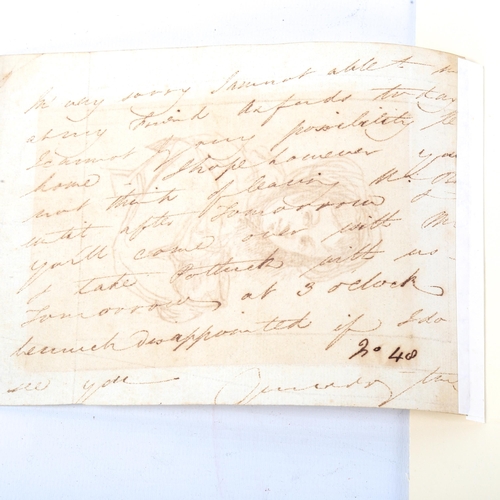 m very sorry I am not able to m
at my Friend Axfords to day
I cannot by any posibility be
home I hope however you
not think of leaving
until after Tomorrow &
you'll come over with m
& take Potluck with us -
Tomorrow at 3 oClock
be much disappointed if I do
No 48
see you